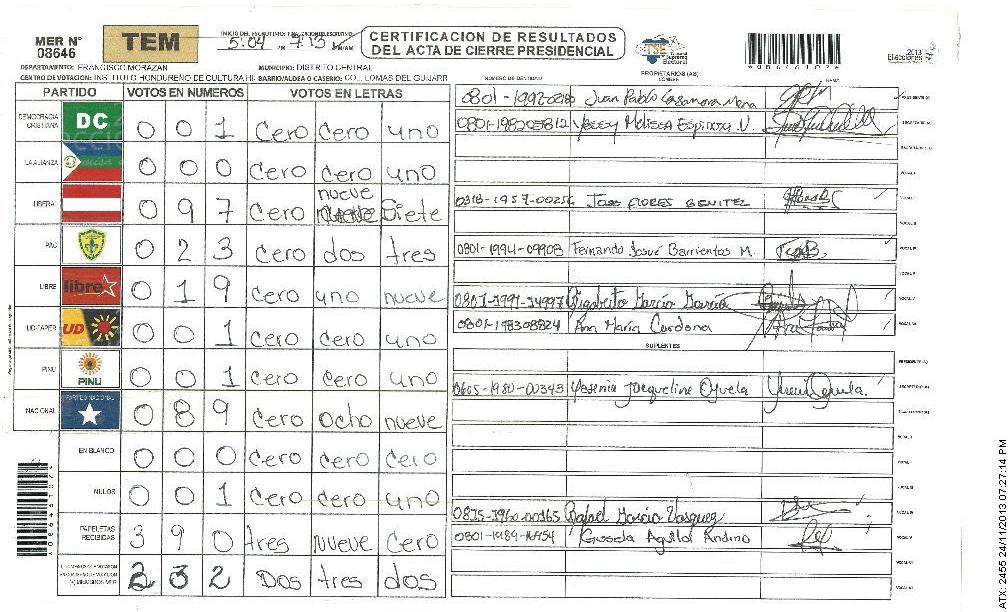 MER N° 08646
TEM
INICIO DEL ESCRUTINIO: FINALIZACION ESCRUTINIO
5:04 PM 7:15 PM/AM
CERTIFICACION DE RESULTADOS DEL ACTA DE CIERRE PRESIDENCIAL
TSE Tribunal Supremo Electoral
2013 Elecciones
DEPARTAMENTO: FRANCISCO MORAZAN MUNICIPIO: DISTRITO CENTRAL
CENTRO DE VOTACION: INSTITUTO HONDUREÑO DE CULTURA HI- BARRIO/ALDEA O CASERIO: COL. LOMAS DEL GUIJARR
NUMERO DE IDENTIDAD PROPIETARIOS (AS) NOMBRE FIRMA
PARTIDO VOTOS EN NUMEROS VOTOS EN LETRAS
DEMOCRACIA CRISTIANA DC 0 0 1 Cero Cero uno
LA ALIANZA 0 0 0 Cero Cero uno
LIBERAL 0 9 7 Cero nueve Siete
PAC 0 2 3 Cero dos tres
LIBRE libre 0 1 9 Cero uno nueve
UD-FAPER UD 0 0 1 Cero Cero uno
PINU PINU 0 0 1 Cero Cero uno
NACIONAL PARTIDO NACIONAL 0 8 9 Cero Ocho nueve
EN BLANCO 0 0 0 Cero Cero Cero
NULOS 0 0 1 Cero Cero uno
PAPELETAS RECIBIDAS 3 9 0 tres nueve Cero
2 3 2 Dos tres dos
Juan Pablo Casamora Mena PRESIDENTE (A)
0801-198205812 Yessy Melissa Espinoza V. SECRETARIO (A)
0318-1957-00256 JOSE FLORES BENITEZ
0801-1994-09908 Fernando Josué Barrientos M.
0801-1991-14997 Rigoberto Garcia Garcia
0801-198308824 Ana Maria Cardona
SUPLENTES
PRESIDENTE (A)
0605-1980-00343 Yesenia Jacqueline Oyuela SECRETARIO (A)
0835-1960-00365 Rafael Garcia Vasquez
0801-1989-16954 Gissela Aguilar Andino
ATX: 2455 24/11/2013 07:27:14 PM